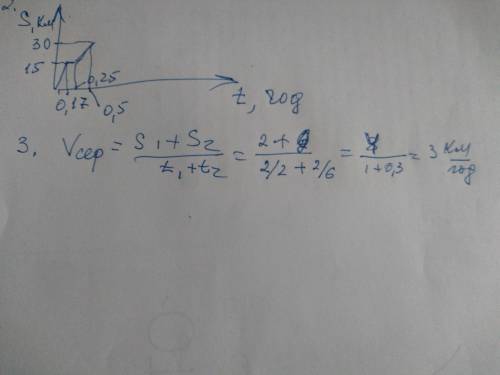 2.
S, км
30
15
0,25
0,17
0,5
t, год
3. Vсер = (S1 + S2)/(t1 + t2) = (2 + )/(2/2 + 2/6) = 4/(1 + 0,3) = 3 км/год